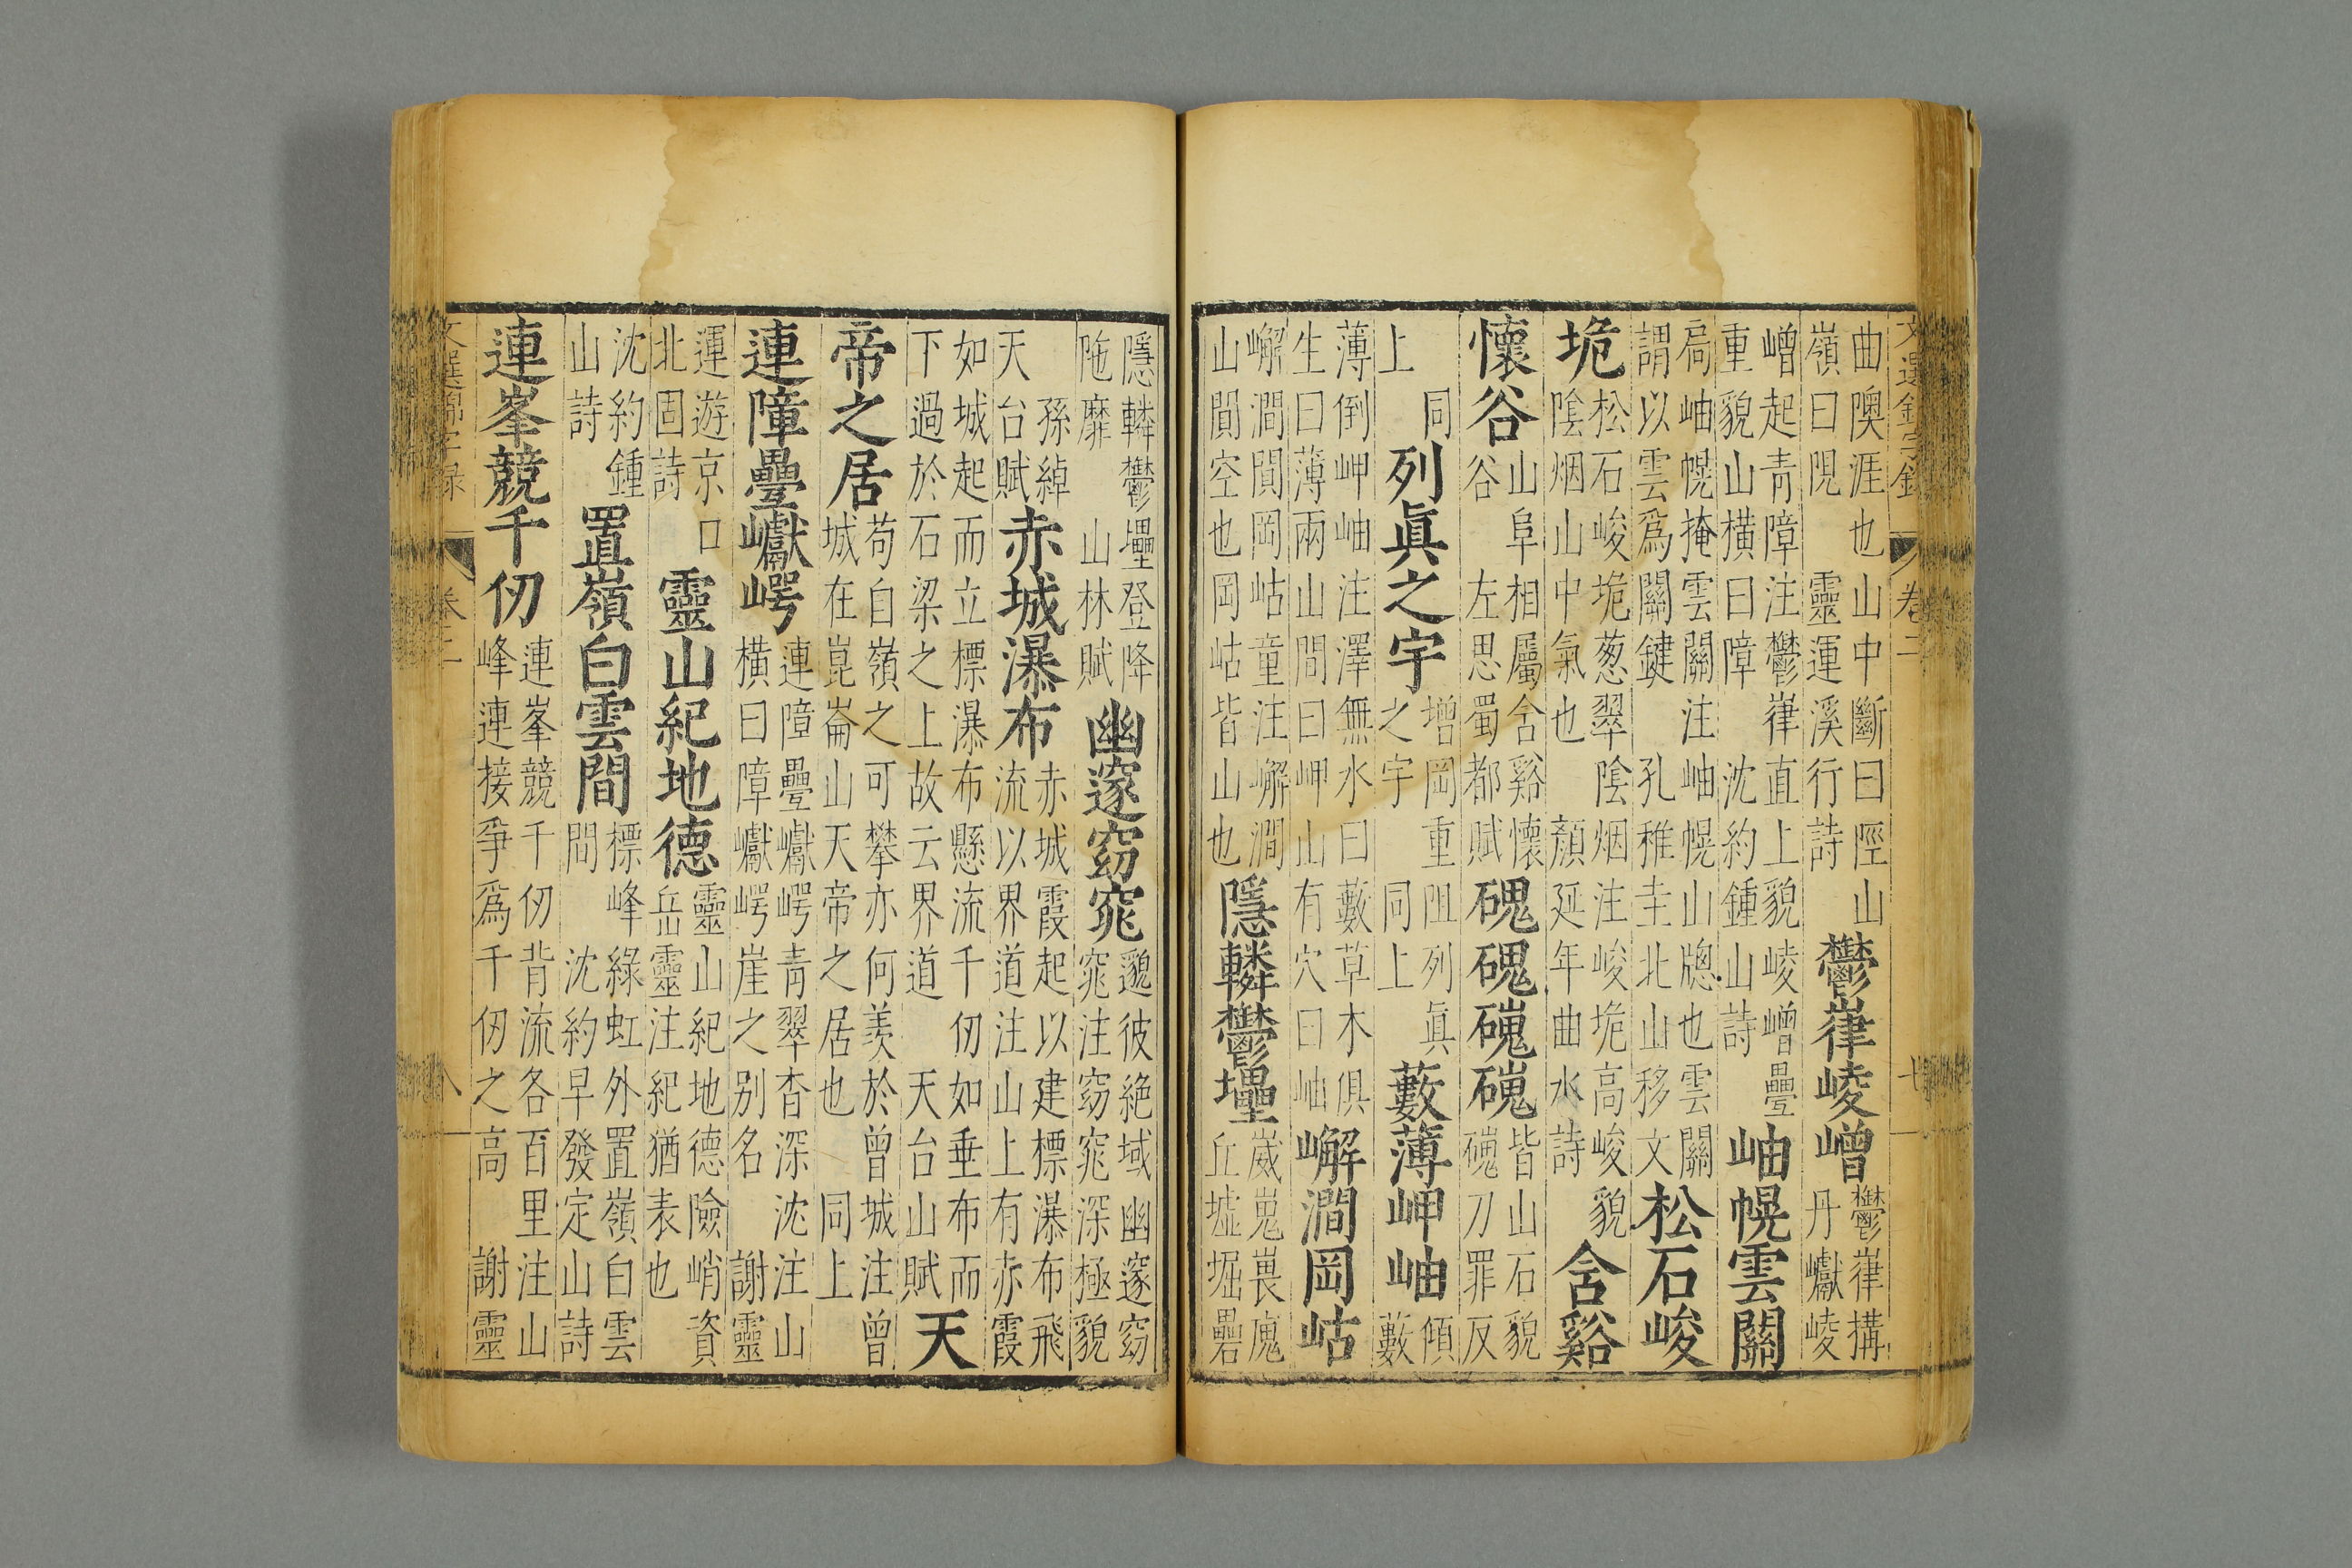 文選錦字錄 卷二 七
曲隩涯也山中斷曰陘山
嶺曰睍 靈運溪行詩
鬱嵂崚嶒
鬱嵂構
丹巘崚
嶒起青障注鬱嵂直上貌崚嶒疊
重貌山橫曰障 沈約鍾山詩
岫幌雲關
扃岫幌掩雲關注岫幌山牕也雲關
謂以雲爲關鍵 孔稚圭北山移文
松石峻
垝
松石峻垝葱翠陰烟注峻垝高峻貌
陰烟山中氣也 顏延年曲水詩
含谿
懷谷
山阜相屬含谿懷
谷 左思蜀都賦
磈磈磑磑
皆山石貌
磑刀罪反
同
上
列眞之宇
增岡重阻列眞
之宇 同上
藪薄岬岫
傾
藪
薄倒岬岫注澤無水曰藪草木俱
生曰薄兩山間曰岬山有穴曰岫
嶰澗岡岵
嶰澗閴岡岵童注嶰澗
山間空也岡岵皆山也
隱轔鬱壘
崴嵬㠢廆
丘墟堀礨
隱轔鬱壘登降
陁靡 山林賦
幽邃窈窕
邈彼絶域幽邃窈
窕注窈窕深極貌
孫綽
天台賦
赤城瀑布
赤城霞起以建標瀑布飛
流以界道注山上有赤霞
如城起而立標瀑布懸流千仞如垂布而
下過於石梁之上故云界道 天台山賦
天
帝之居
苟自嶺之可攀亦何羨於曾城注曾
城在崑崙山天帝之居也 同上
連障疊巘崿
連障疊巘崿青翠杳深沈注山
橫曰障巘崿崖之别名 謝靈
運遊京口
北固詩
靈山紀地德
靈山紀地德險峭資
岳靈注紀猶表也
沈約鍾
山詩
置嶺白雲間
標峰綠虹外置嶺白雲
間 沈約早發定山詩
連峯競千仞
連峯競千仞背流各百里注山
峰連接爭爲千仞之高 謝靈
文選錦字錄 卷二 八